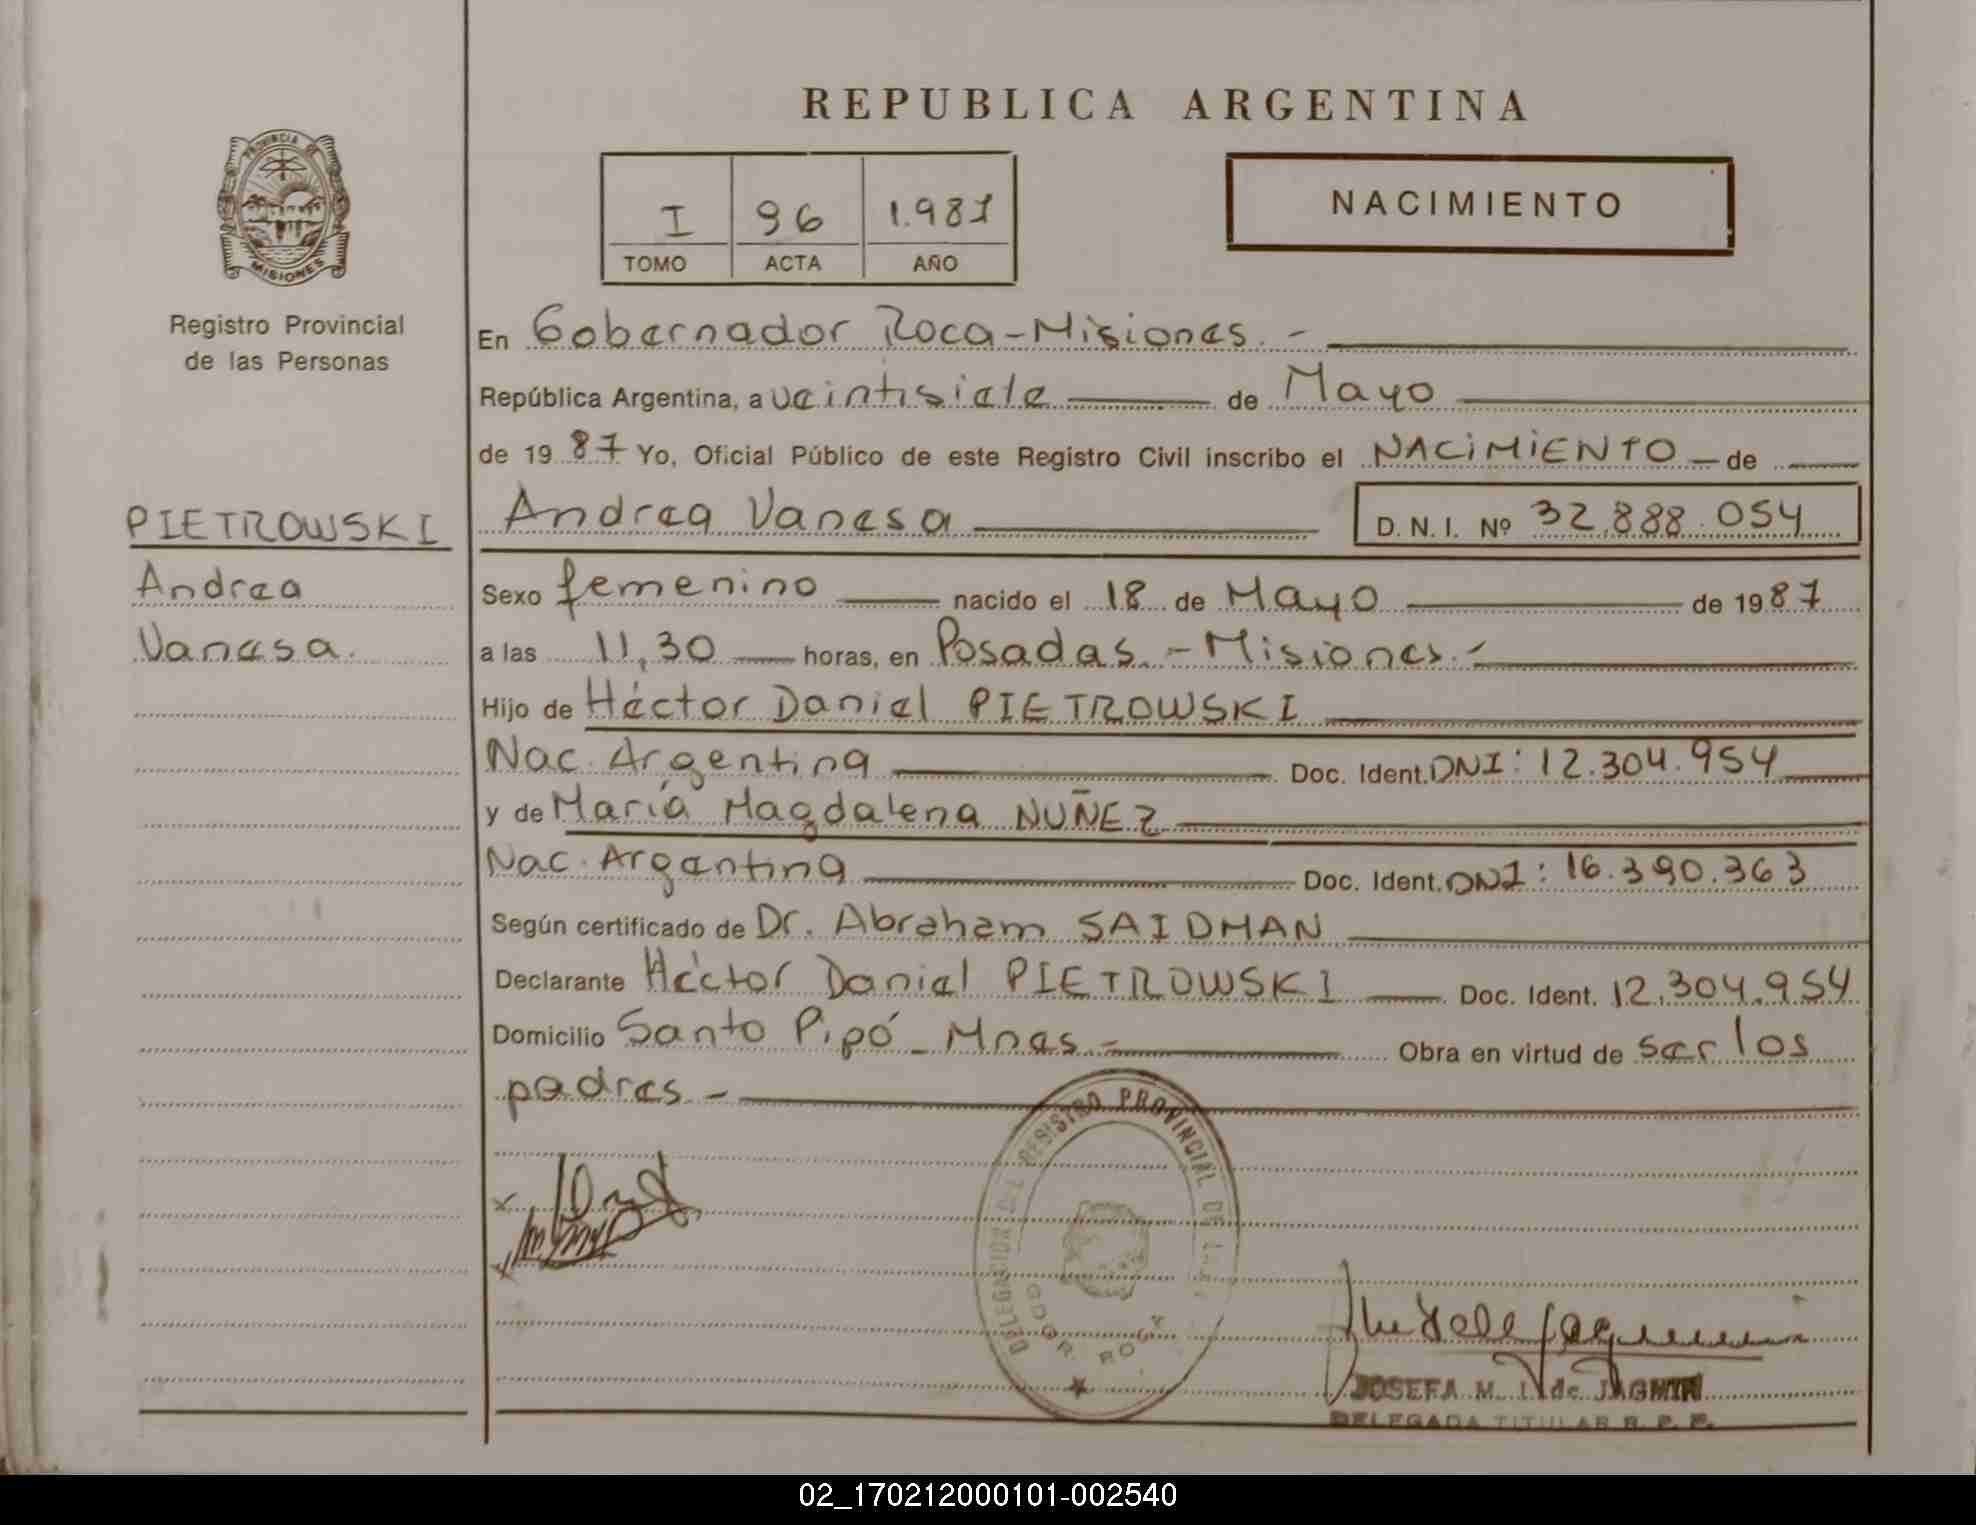 REPUBLICA ARGENTINA
PROVINCIA DE
MISIONES
I 96 1.987
TOMO ACTA AÑO
NACIMIENTO
Registro Provincial
de las Personas
En Gobernador Roca-Misiones.-
República Argentina, a veintisiete de Mayo
de 1987 Yo, Oficial Público de este Registro Civil inscribo el NACIMIENTO de
PIETROWSKI
Andrea
Vanesa.
Andrea Vanesa D. N. I. Nº 32.888.054
Sexo femenino nacido el 18 de Mayo de 1987
a las 11,30 horas, en Posadas.-Misiones.-
Hijo de Héctor Daniel PIETROWSKI
Nac. Argentina Doc. Ident. DNI: 12.304.954
y de María Magdalena NUÑEZ
Nac. Argentina Doc. Ident. DNI: 16.390.363
Según certificado de Dr. Abraham SAIDMAN
Declarante Héctor Daniel PIETROWSKI Doc. Ident. 12.304.954
Domicilio Santo Pipó - Mnes.- Obra en virtud de ser los
padres.-
DELEGACION DEL REGISTRO PROVINCIAL DE
GDOR. ROCA
JOSEFA M. I. de JAGMIN
DELEGADA TITULAR R. P. P.
02_170212000101-002540